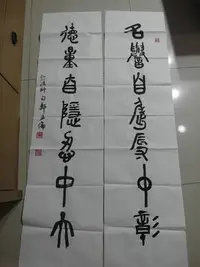 名譽自屈辱中彰
德量自隱忍中大